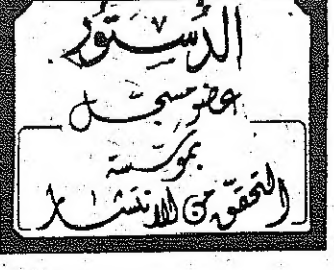 الدُستور
عضو مسجل
بمؤسسة
التحقق من الانتشار